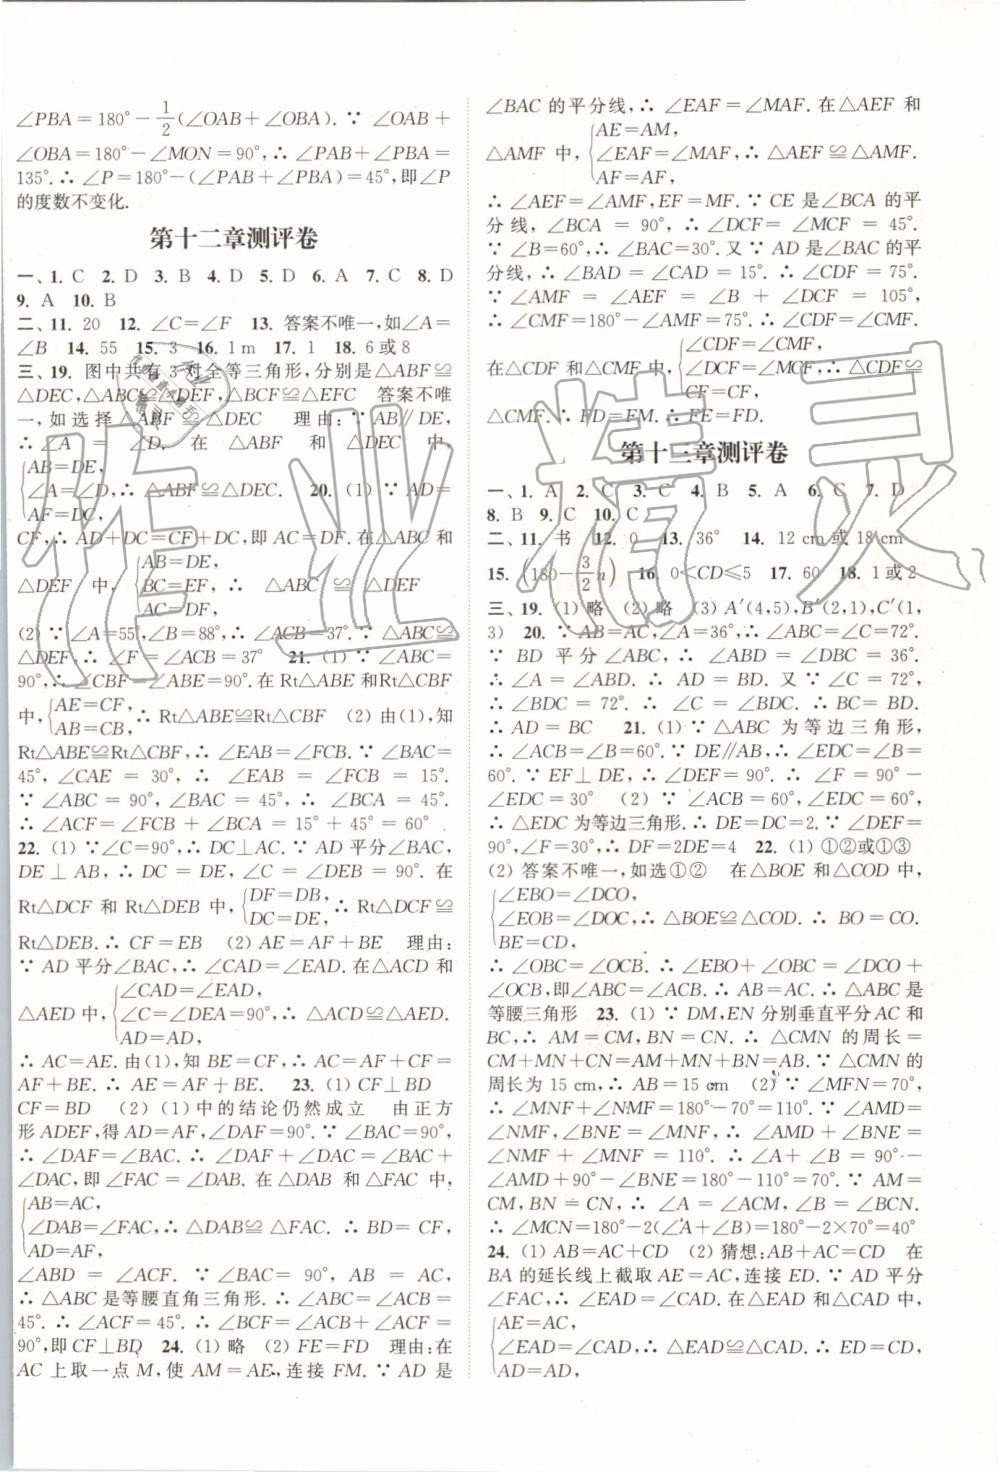 ∠PBA=180°-1/2(∠OAB+∠OBA).∵ ∠OAB+
∠OBA=180°-∠MON=90°,∴ ∠PAB+∠PBA=
135°.∴ ∠P=180°-(∠PAB+∠PBA)=45°,即∠P
的度数不变化.
第十二章测评卷
一、1. C 2. D 3. B 4. D 5. D 6. A 7. C 8. D
9. A 10. B
二、11. 20 12. ∠C=∠F 13. 答案不唯一,如∠A=
∠B 14. 55 15. 3 16. 1 m 17. 1 18. 6或8
三、19. 图中共有3对全等三角形,分别是△ABF≌
△DEC,△ABC≌△DEF,△BCF≌△EFC 答案不唯
一,如选择△ABF≌△DEC 理由:∵ AB∥DE,
∴ ∠A = ∠D. 在 △ABF 和 △DEC 中,
AB=DE,
∠A=∠D,∴ △ABF≌△DEC. 20. (1) ∵ AD=
AF=DC,
CF,∴ AD+DC=CF+DC,即AC=DF.在△ABC和
AB=DE,
△DEF 中, BC=EF, ∴ △ABC ≌ △DEF
AC=DF.
(2) ∵ ∠A=55°,∠B=88°,∴ ∠ACB=37°.∵ △ABC≌
△DEF,∴ ∠F=∠ACB=37° 21. (1) ∵ ∠ABC=
90°,∴ ∠CBF=∠ABE=90°.在Rt△ABE和Rt△CBF
中, AE=CF,
AB=CB, ∴ Rt△ABE≌Rt△CBF (2) 由(1),知
Rt△ABE≌Rt△CBF,∴ ∠EAB=∠FCB.∵ ∠BAC=
45°,∠CAE = 30°,∴ ∠EAB = ∠FCB = 15°.
∵ ∠ABC = 90°,∠BAC = 45°,∴ ∠BCA = 45°.
∴ ∠ACF=∠FCB + ∠BCA = 15° + 45° = 60°
22. (1) ∵∠C=90°,∴ DC⊥AC.∵ AD平分∠BAC,
DE⊥AB,∴ DC=DE,∠C=∠DEB=90°.在
Rt△DCF 和 Rt△DEB 中, DF=DB,
DC=DE, ∴ Rt△DCF≌
Rt△DEB.∴ CF=EB (2) AE=AF+BE 理由:
∵ AD平分∠BAC,∴ ∠CAD=∠EAD.在△ACD和
∠CAD=∠EAD,
△AED中, ∠C=∠DEA=90°,∴ △ACD≌△AED.
AD=AD,
∴ AC=AE.由(1),知BE=CF,∴ AC=AF+CF=
AF+BE.∴ AE=AF+BE 23. (1) CF⊥BD
CF=BD (2) (1)中的结论仍然成立 由正方
形ADEF,得AD=AF,∠DAF=90°.∵ ∠BAC=90°,
∴ ∠DAF=∠BAC.∴ ∠DAF+∠DAC=∠BAC+
∠DAC,即∠FAC=∠DAB.在△DAB和△FAC中,
AB=AC,
∠DAB=∠FAC,∴ △DAB≌△FAC.∴ BD=CF,
AD=AF,
∠ABD = ∠ACF. ∵ ∠BAC = 90°, AB = AC,
∴ △ABC是等腰直角三角形.∴ ∠ABC=∠ACB=
45°.∴ ∠ACF=45°.∴ ∠BCF=∠ACB+∠ACF=
90°,即CF⊥BD 24. (1) 略 (2) FE=FD 理由:在
AC上取一点M,使AM=AE,连接FM.∵ AD是
∠BAC的平分线,∴ ∠EAF=∠MAF.在△AEF和
AE=AM,
△AMF 中, ∠EAF=∠MAF,∴ △AEF≌△AMF.
AF=AF,
∴ ∠AEF=∠AMF,EF=MF.∵ CE是∠BCA的平
分线,∠BCA = 90°,∴ ∠DCF = ∠MCF = 45°.
∵ ∠B=60°,∴ ∠BAC=30°.又∵ AD是∠BAC的平
分线,∴ ∠BAD = ∠CAD = 15°.∴ ∠CDF = 75°.
∵ ∠AMF = ∠AEF = ∠B + ∠DCF = 105°,
∴ ∠CMF=180°-∠AMF=75°.∴ ∠CDF=∠CMF.
∠CDF=∠CMF,
在△CDF和△CMF中, ∠DCF=∠MCF,∴ △CDF≌
CF=CF,
△CMF.∴ FD=FM.∴ FE=FD.
第十三章测评卷
一、1. A 2. C 3. C 4. B 5. A 6. C 7. D
8. B 9. C 10. C
二、11. 书 12. 0 13. 36° 14. 12 cm或18 cm
15. (180-3/2 n) 16. 0<CD≤5 17. 60 18. 1或2
三、19. (1) 略 (2) 略 (3) A′(4,5),B′(2,1),C′(1,
3) 20. ∵ AB=AC,∠A=36°,∴ ∠ABC=∠C=72°.
∵ BD 平分∠ABC,∴ ∠ABD = ∠DBC = 36°.
∴ ∠A = ∠ABD.∴ AD = BD. 又 ∵ ∠C = 72°,
∴ ∠BDC = 72°.∴ ∠C = ∠BDC.∴ BC= BD.
∴ AD=BC 21. (1) ∵ △ABC 为等边三角形,
∴ ∠ACB=∠B=60°.∵ DE∥AB,∴ ∠EDC=∠B=
60°.∵ EF⊥DE,∴ ∠DEF=90°.∴ ∠F = 90°-
∠EDC=30° (2) ∵ ∠ACB=60°,∠EDC=60°,
∴ △EDC为等边三角形.∴ DE=DC=2.∵ ∠DEF=
90°,∠F=30°,∴ DF=2DE=4 22. (1) ①②或①③
(2) 答案不唯一,如选①② 在△BOE和△COD中,
∠EBO=∠DCO,
∠EOB=∠DOC,∴ △BOE≌△COD.∴ BO=CO.
BE=CD,
∴ ∠OBC=∠OCB.∴ ∠EBO+∠OBC=∠DCO+
∠OCB,即∠ABC=∠ACB.∴ AB=AC.∴ △ABC是
等腰三角形 23. (1) ∵ DM,EN分别垂直平分AC和
BC,∴ AM=CM,BN=CN.∴ △CMN 的周长=
CM+MN+CN=AM+MN+BN=AB.∵ △CMN的
周长为15 cm,∴ AB=15 cm (2) ∵ ∠MFN=70°,
∴ ∠MNF+∠NMF=180°-70°=110°.∵ ∠AMD=
∠NMF,∠BNE=∠MNF,∴ ∠AMD+∠BNE=
∠NMF + ∠MNF = 110°.∴ ∠A + ∠B = 90°-
∠AMD+90°-∠BNE=180°-110°=70°.∵ AM=
CM,BN=CN,∴ ∠A = ∠ACM,∠B = ∠BCN.
∴ ∠MCN=180°-2(∠A+∠B)=180°-2×70°=40°
24. (1) AB=AC+CD (2) 猜想:AB+AC=CD 在
BA的延长线上截取AE=AC,连接ED.∵ AD平分
∠FAC,∴ ∠EAD=∠CAD.在△EAD和△CAD中,
AE=AC,
∠EAD=∠CAD,∴ △EAD≌△CAD.∴ ED=CD,
AD=AD,
作业精灵